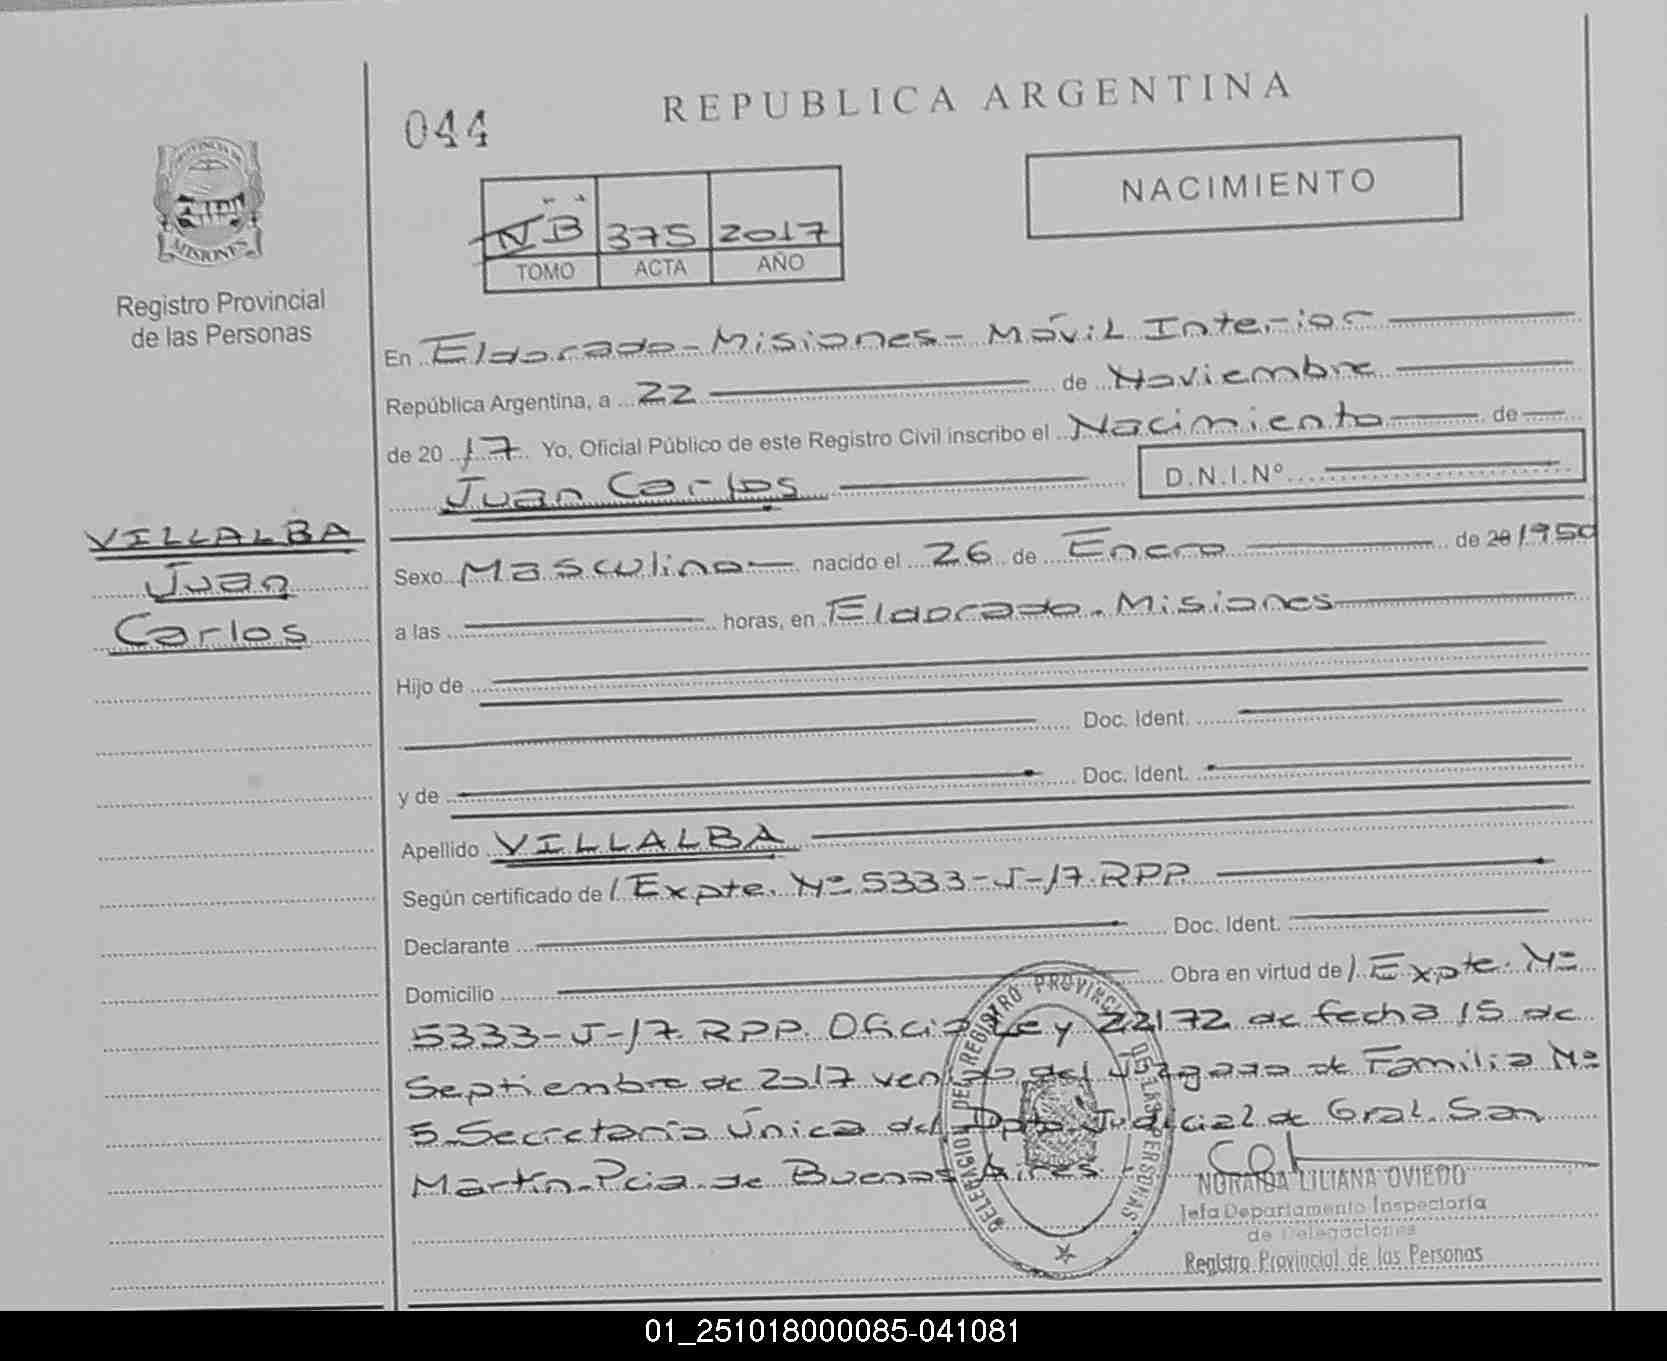 REPUBLICA ARGENTINA
044
NACIMIENTO
PROVINCIA DE
MISIONES
Registro Provincial
de las Personas
NB 375 2017
TOMO ACTA AÑO
En Eldorado-Misiones-Móvil Interior
República Argentina, a 22 de Noviembre
de 2017 Yo, Oficial Público de este Registro Civil inscribo el Nacimiento de
Juan Carlos D.N.I.Nº
VILLALBA
Juan
Carlos
Sexo Masculino nacido el 26 de Enero de 20/1950
a las horas, en Eldorado-Misiones
Hijo de
Doc. Ident.
y de Doc. Ident.
Apellido VILLALBA
Según certificado de / Expte. Nº 5333-J-17 RPP
Declarante Doc. Ident.
Domicilio Obra en virtud de / Expte. Nº
5333-J-17 RPP. Oficio Ley 22172 de fecha 15 de
Septiembre de 2017 venido del Juzgado de Familia Nº
5-Secretaría Única del Dpto. Judicial de Gral. San
Martín-Pcia de Buenos Aires.
DELEGACION DEL REGISTRO PROVINCIAL DE LAS PERSONAS
NORAIDA LILIANA OVIEDO
Jefa Departamento Inspectoría
de Delegaciones
Registro Provincial de las Personas
01_251018000085-041081